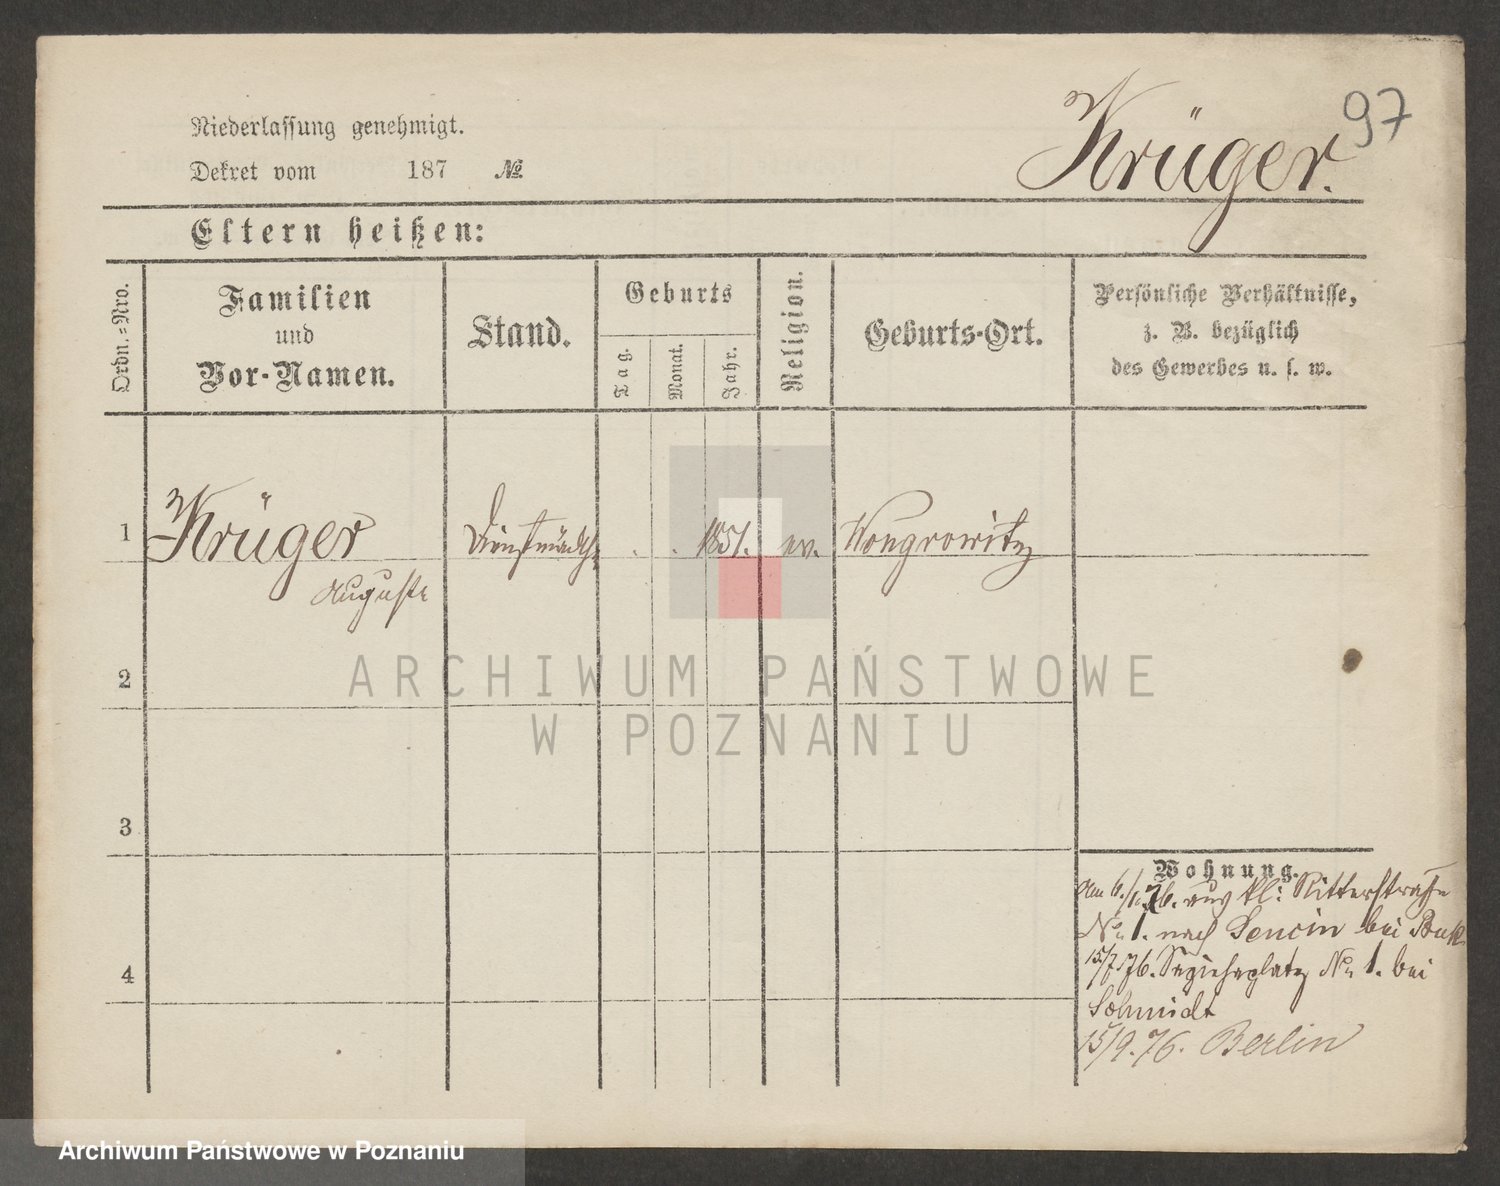 97
Krüger.
Niederlassung genehmigt.
Dekret vom 187 №
Eltern heißen:
Ordn.-Nro.
Familien
und
Vor-Namen.
Stand.
Geburts
Tag.
Monat.
Jahr.
Religion.
Geburts-Ort.
Persönliche Verhältnisse,
z. B. bezüglich
des Gewerbes u. s. w.
1 Krüger Dienstmädch. . . 1851. ev. Wongrowitz
Auguste
2
ARCHIWUM PAŃSTWOWE
W POZNANIU
3
Wohnung.
Am 6./1.76. aus kl: Ritterstraße
No 1. nach Sencin bei Buk
15/7 76. Sapiehaplatz No 1. bei
4
Schmidt
15/9.76. Berlin
Archiwum Państwowe w Poznaniu